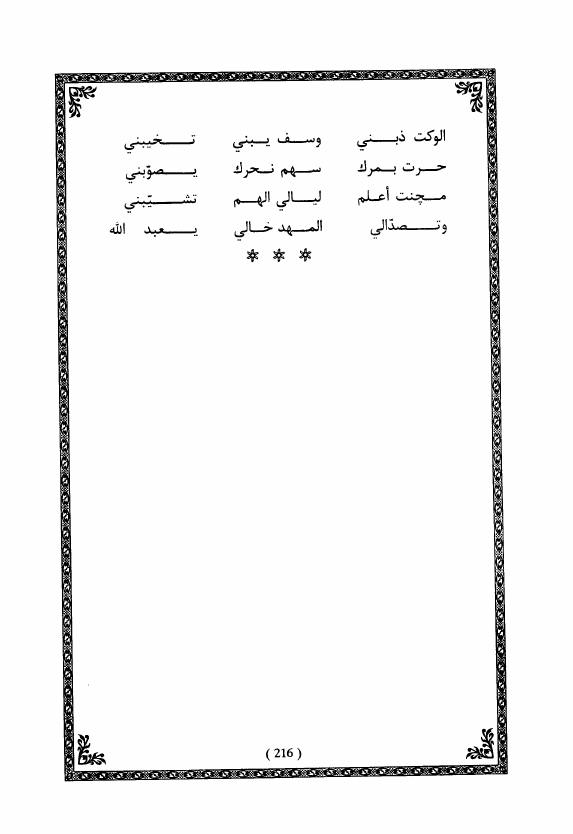 الوكت ذبني وسف يبني تخيبني
حرت بمرك سهم نحرك يصوّبني
مچنت أعلم ليالي الهم تشيّبني
وتصدّالي المهد خالي يعبد الله
* * *
( 216 )